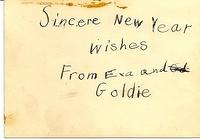 Sincere New Year
Wishes
From Exa and
Goldie